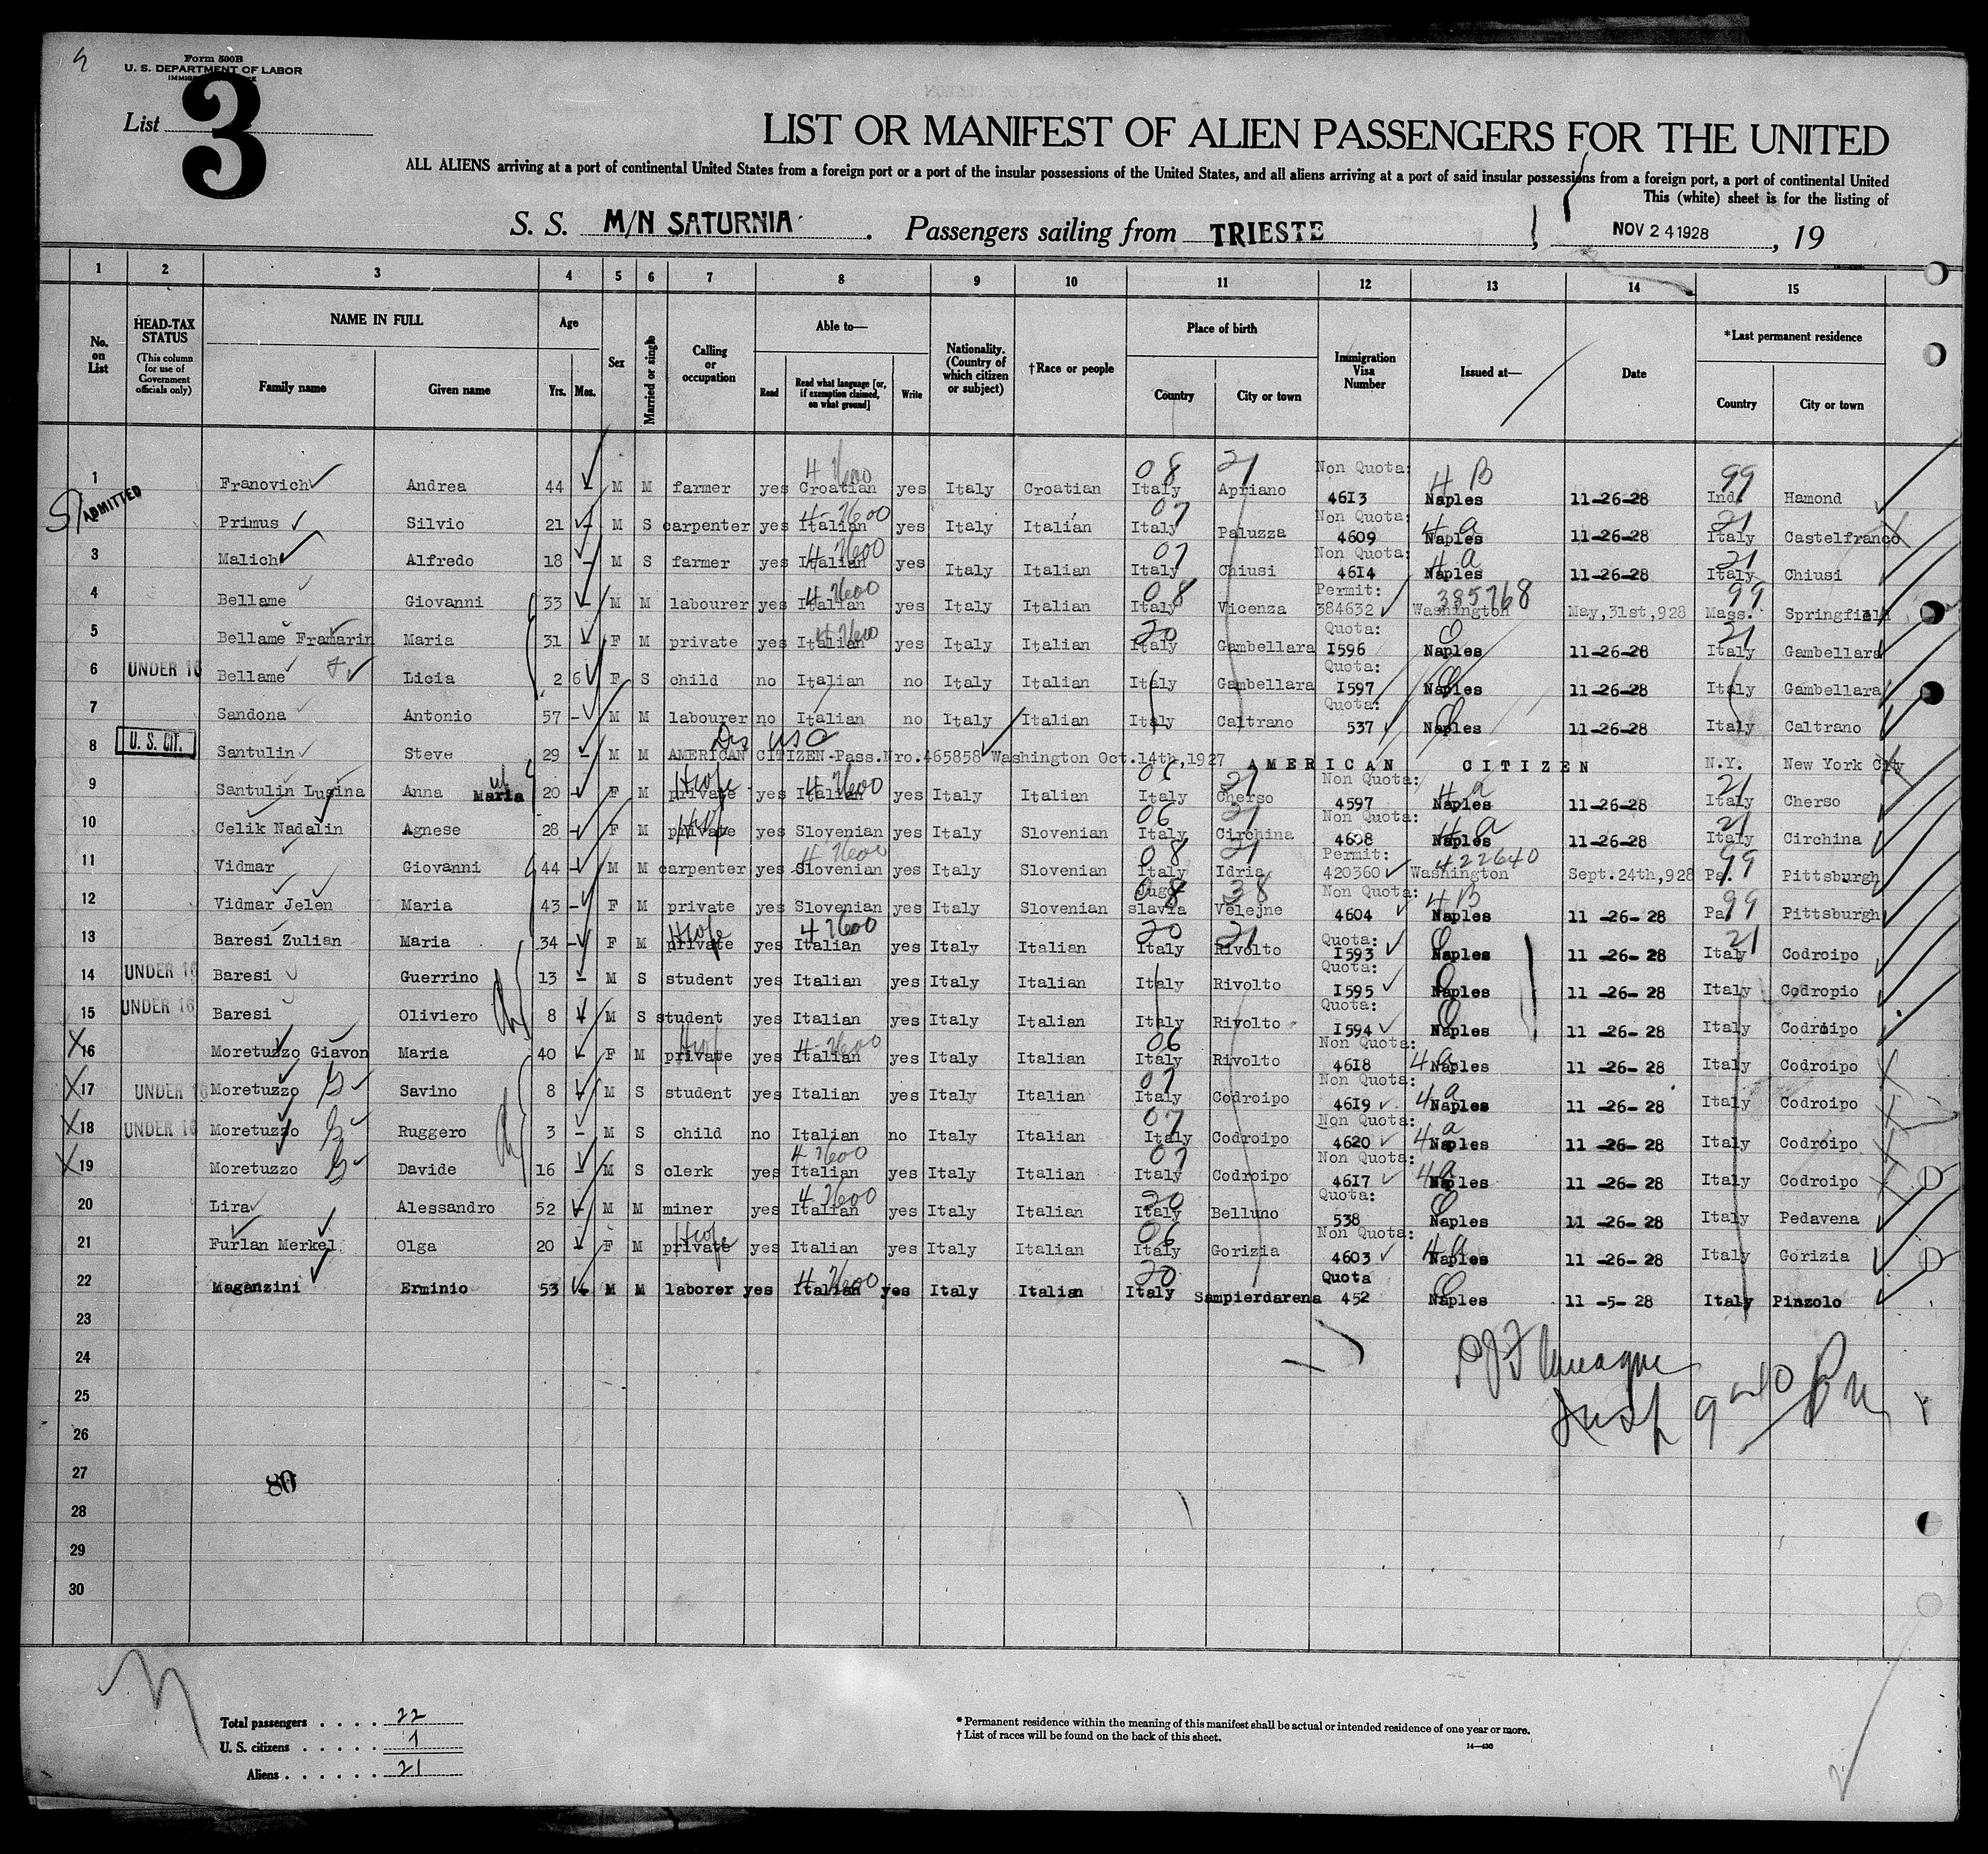 Form 500B
U. S. DEPARTMENT OF LABOR
List 3
LIST OR MANIFEST OF ALIEN PASSENGERS FOR THE UNITED
ALL ALIENS arriving at a port of continental United States from a foreign port or a port of the insular possessions of the United States, and all aliens arriving at a port of said insular possessions from a foreign port, a port of continental United
This (white) sheet is for the listing of
S. S. M/N SATURNIA. Passengers sailing from TRIESTE, NOV 24 1928, 19
1 2 3 4 5 6 7 8 9 10 11 12 13 14 15
No. on List
HEAD-TAX STATUS (This column for use of Government officials only)
NAME IN FULL
Family name Given name
Age
Yrs. Mos.
Sex
Married or single
Calling or occupation
Able to—
Read Read what language [or, if exemption claimed, on what ground] Write
Nationality. (Country of which citizen or subject)
†Race or people
Place of birth
Country City or town
Immigration Visa Number
Issued at—
Date
*Last permanent residence
Country City or town
1 Franovich Andrea 44 - M M farmer yes Croatian yes Italy Croatian Italy Apriano Non Quota: 4613 Naples 11-26-28 Ind. Hamond
ADMITTED Primus Silvio 21 - M S carpenter yes Italian yes Italy Italian Italy Paluzza Non Quota: 4609 Naples 11-26-28 Italy Castelfranco
3 Malich Alfredo 18 - M S farmer yes Italian yes Italy Italian Italy Chiusi Non Quota: 4614 Naples 11-26-28 Italy Chiusi
4 Bellame Giovanni 33 - M M labourer yes Italian yes Italy Italian Italy Vicenza Permit: 384632 385768 Washington May,31st,928 Mass. Springfield
5 Bellame Framarin Maria 31 - F M private yes Italian yes Italy Italian Italy Gambellara Quota: I596 Naples 11-26-28 Italy Gambellara
6 UNDER 16 Bellame Licia 2 6 F S child no Italian no Italy Italian Italy Gambellara Quota: I597 Naples 11-26-28 Italy Gambellara
7 Sandona Antonio 57 - M M labourer no Italian no Italy Italian Italy Caltrano Quota: 537 Naples 11-26-28 Italy Caltrano
8 U. S. CIT. Santulin Steve 29 - M M AMERICAN CITIZEN-Pass.Nro.465858 Washington Oct.14th,1927 AMERICAN CITIZEN N.Y. New York City
9 Santulin Lusina Anna Maria 20 - F M private yes Italian yes Italy Italian Italy Cherso Non Quota: 4597 Naples 11-26-28 Italy Cherso
10 Celik Nadalin Agnese 28 - F M private yes Slovenian yes Italy Slovenian Italy Circhina Non Quota: 4608 Naples 11-26-28 Italy Circhina
11 Vidmar Giovanni 44 - M M carpenter yes Slovenian yes Italy Slovenian Italy Idria Permit: 420360 422640 Washington Sept.24th,928 Pa. Pittsburgh
12 Vidmar Jelen Maria 43 - F M private yes Slovenian yes Italy Slovenian Jugo slavia Velejne Non Quota: 4604 Naples 11-26-28 Pa. Pittsburgh
13 Baresi Zulian Maria 34 - F M private yes Italian yes Italy Italian Italy Rivolto Quota: I593 Naples 11-26-28 Italy Codroipo
14 UNDER 16 Baresi Guerrino 13 - M S student yes Italian yes Italy Italian Italy Rivolto Quota: I595 Naples 11-26-28 Italy Codropio
15 UNDER 16 Baresi Oliviero 8 M S student yes Italian yes Italy Italian Italy Rivolto Quota: I594 Naples 11-26-28 Italy Codroipo
X16 Moretuzzo Giavon Maria 40 - F M private yes Italian yes Italy Italian Italy Rivolto Non Quota: 4618 Naples 11-26-28 Italy Codroipo
X17 UNDER 16 Moretuzzo Savino 8 M S student yes Italian yes Italy Italian Italy Codroipo Non Quota: 4619 Naples 11-26-28 Italy Codroipo
X18 UNDER 16 Moretuzzo Ruggero 3 - M S child no Italian no Italy Italian Italy Codroipo Non Quota: 4620 Naples 11-26-28 Italy Codroipo
X19 Moretuzzo Davide 16 - M S clerk yes Italian yes Italy Italian Italy Codroipo Non Quota: 4617 Naples 11-26-28 Italy Codroipo
20 Lira Alessandro 52 - M M miner yes Italian yes Italy Italian Italy Belluno Quota: 538 Naples 11-26-28 Italy Pedavena
21 Furlan Merkel Olga 20 - F M private yes Italian yes Italy Italian Italy Gorizia Non Quota: 4603 Naples 11-26-28 Italy Gorizia
22 Maganzini Erminio 53 M M laborer yes Italian yes Italy Italian Italy Sampierdarena Quota 452 Naples 11-5-28 Italy Pinzolo
23
24
25
26
27
28
29
30
80
Total passengers . . . . 22
U. S. citizens . . . . . 1
Aliens . . . . . . 21
* Permanent residence within the meaning of this manifest shall be actual or intended residence of one year or more.
† List of races will be found on the back of this sheet.
14—430